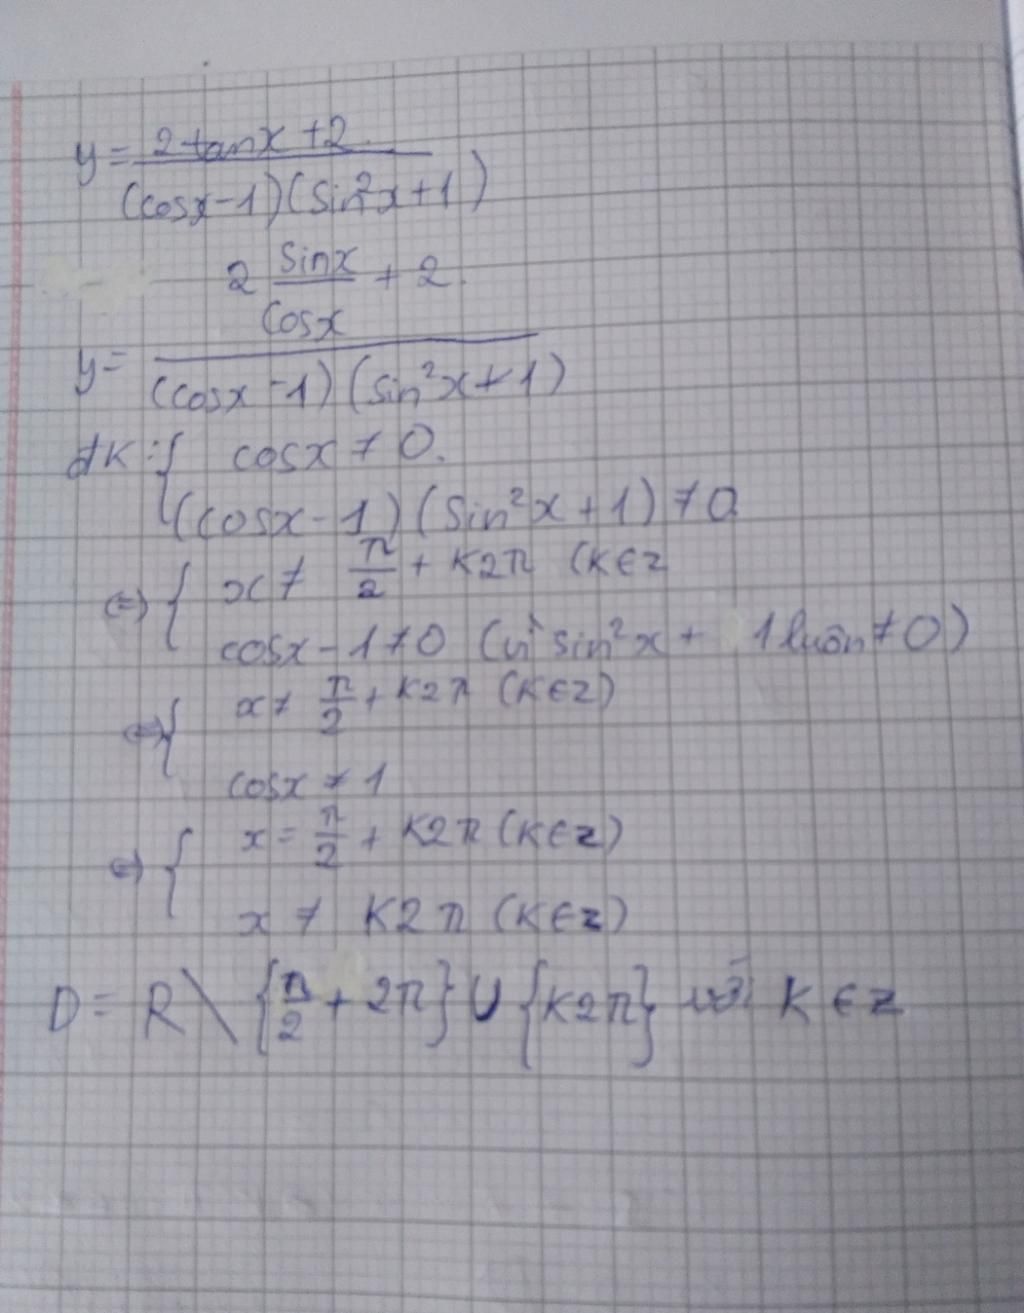 y = (2tanx + 2) / ((cosx - 1)(sin²x + 1))
y = (2 sinx/cosx + 2) / ((cosx - 1)(sin²x + 1))
đK: { cosx ≠ 0.
(cosx - 1)(sin²x + 1) ≠ 0
⇔ { x ≠ π/2 + K2π (K∈Z
cosx - 1 ≠ 0 (vì sin²x + 1 luôn ≠ 0)
⇔ { x ≠ π/2 + K2π (K∈Z)
cosx ≠ 1
⇔ { x = π/2 + K2π (K∈Z)
x ≠ K2π (K∈Z)
D = R \ {π/2 + 2π} ∪ {K2π} với K ∈ Z